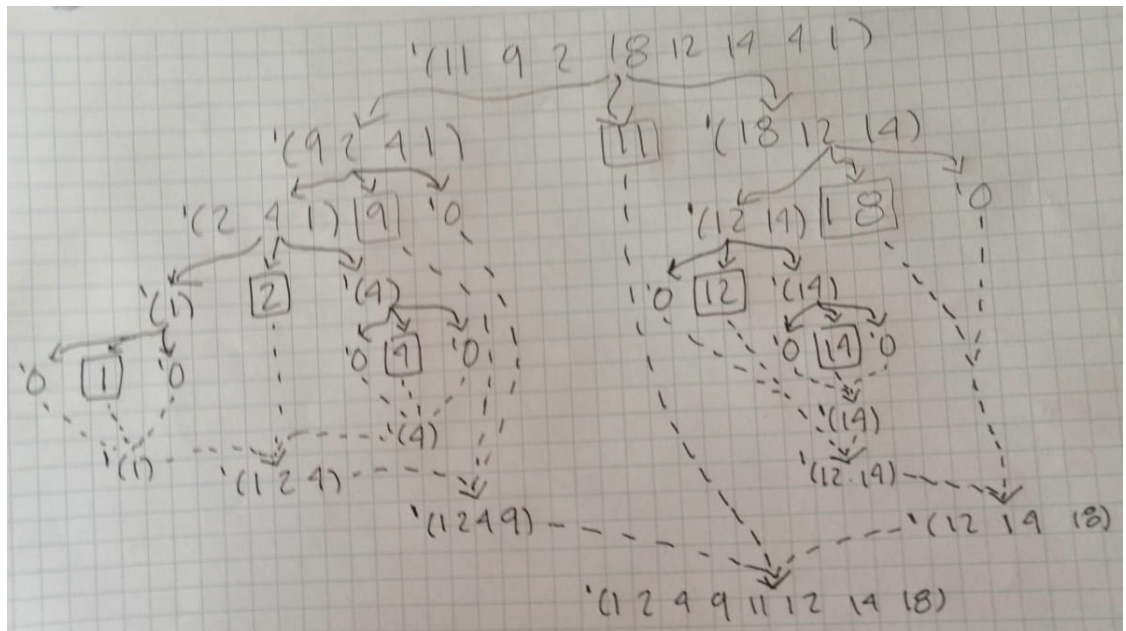 '(11 9 2 18 12 14 4 1)
'(9 2 4 1) 11 '(18 12 14)
'(2 4 1) 9 '() '(12 14) 18 '()
'(1) 2 '(4) '() 12 '(14)
'() 1 '() '() 4 '() '() 14 '()
'(1) '(4) '(14)
'(1 2 4) '(12 14)
'(1 2 4 9) '(12 14 18)
'(1 2 4 9 11 12 14 18)